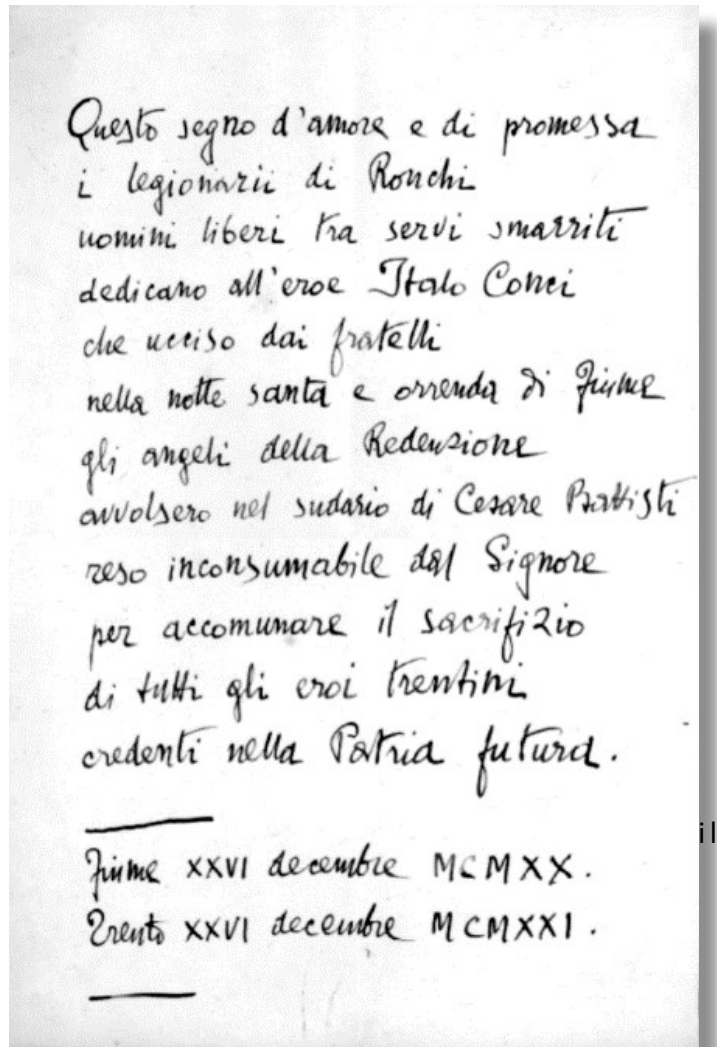 Questo segno d'amore e di promessa
i legionarii di Ronchi
uomini liberi tra servi smarriti
dedicano all'eroe Italo Conci
che ucciso dai fratelli
nella notte santa e orrenda di Fiume
gli angeli della Redenzione
avvolsero nel sudario di Cesare Battisti
reso inconsumabile dal Signore
per accomunare il sacrifizio
di tutti gli eroi trentini
credenti nella Patria futura.
il
Fiume XXVI decembre MCMXX.
Trento XXVI decembre MCMXXI.